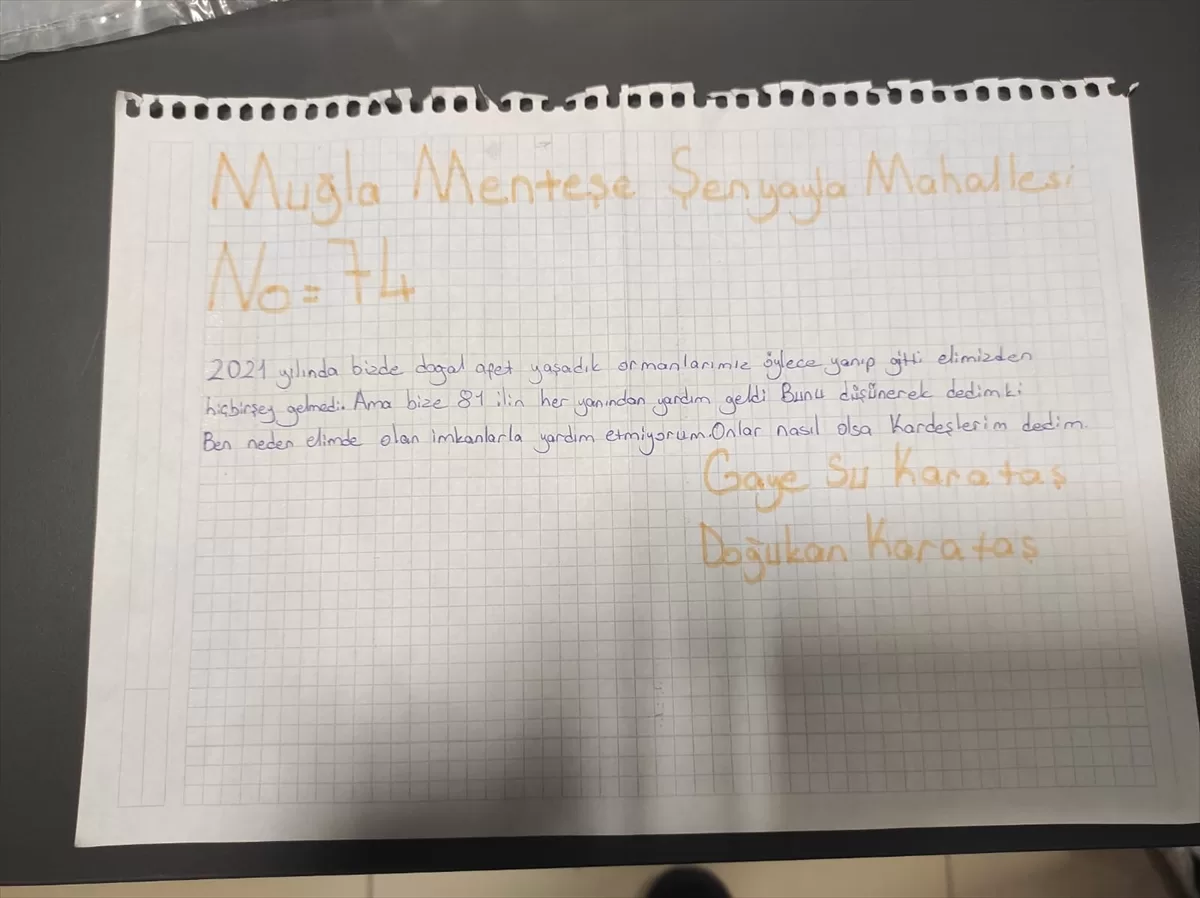 Muğla Menteşe Şenyayla Mahallesi
No=74
2021 yılında bizde doğal afet yaşadık ormanlarımız öylece yanıp gitti elimizden
hiçbirşey gelmedi. Ama bize 81 ilin her yanından yardım geldi Bunu düşünerek dedimki
Ben neden elimde olan imkanlarla yardım etmiyorum. Onlar nasıl olsa Kardeşlerim dedim.
Gaye Su Karataş
Doğukan Karataş